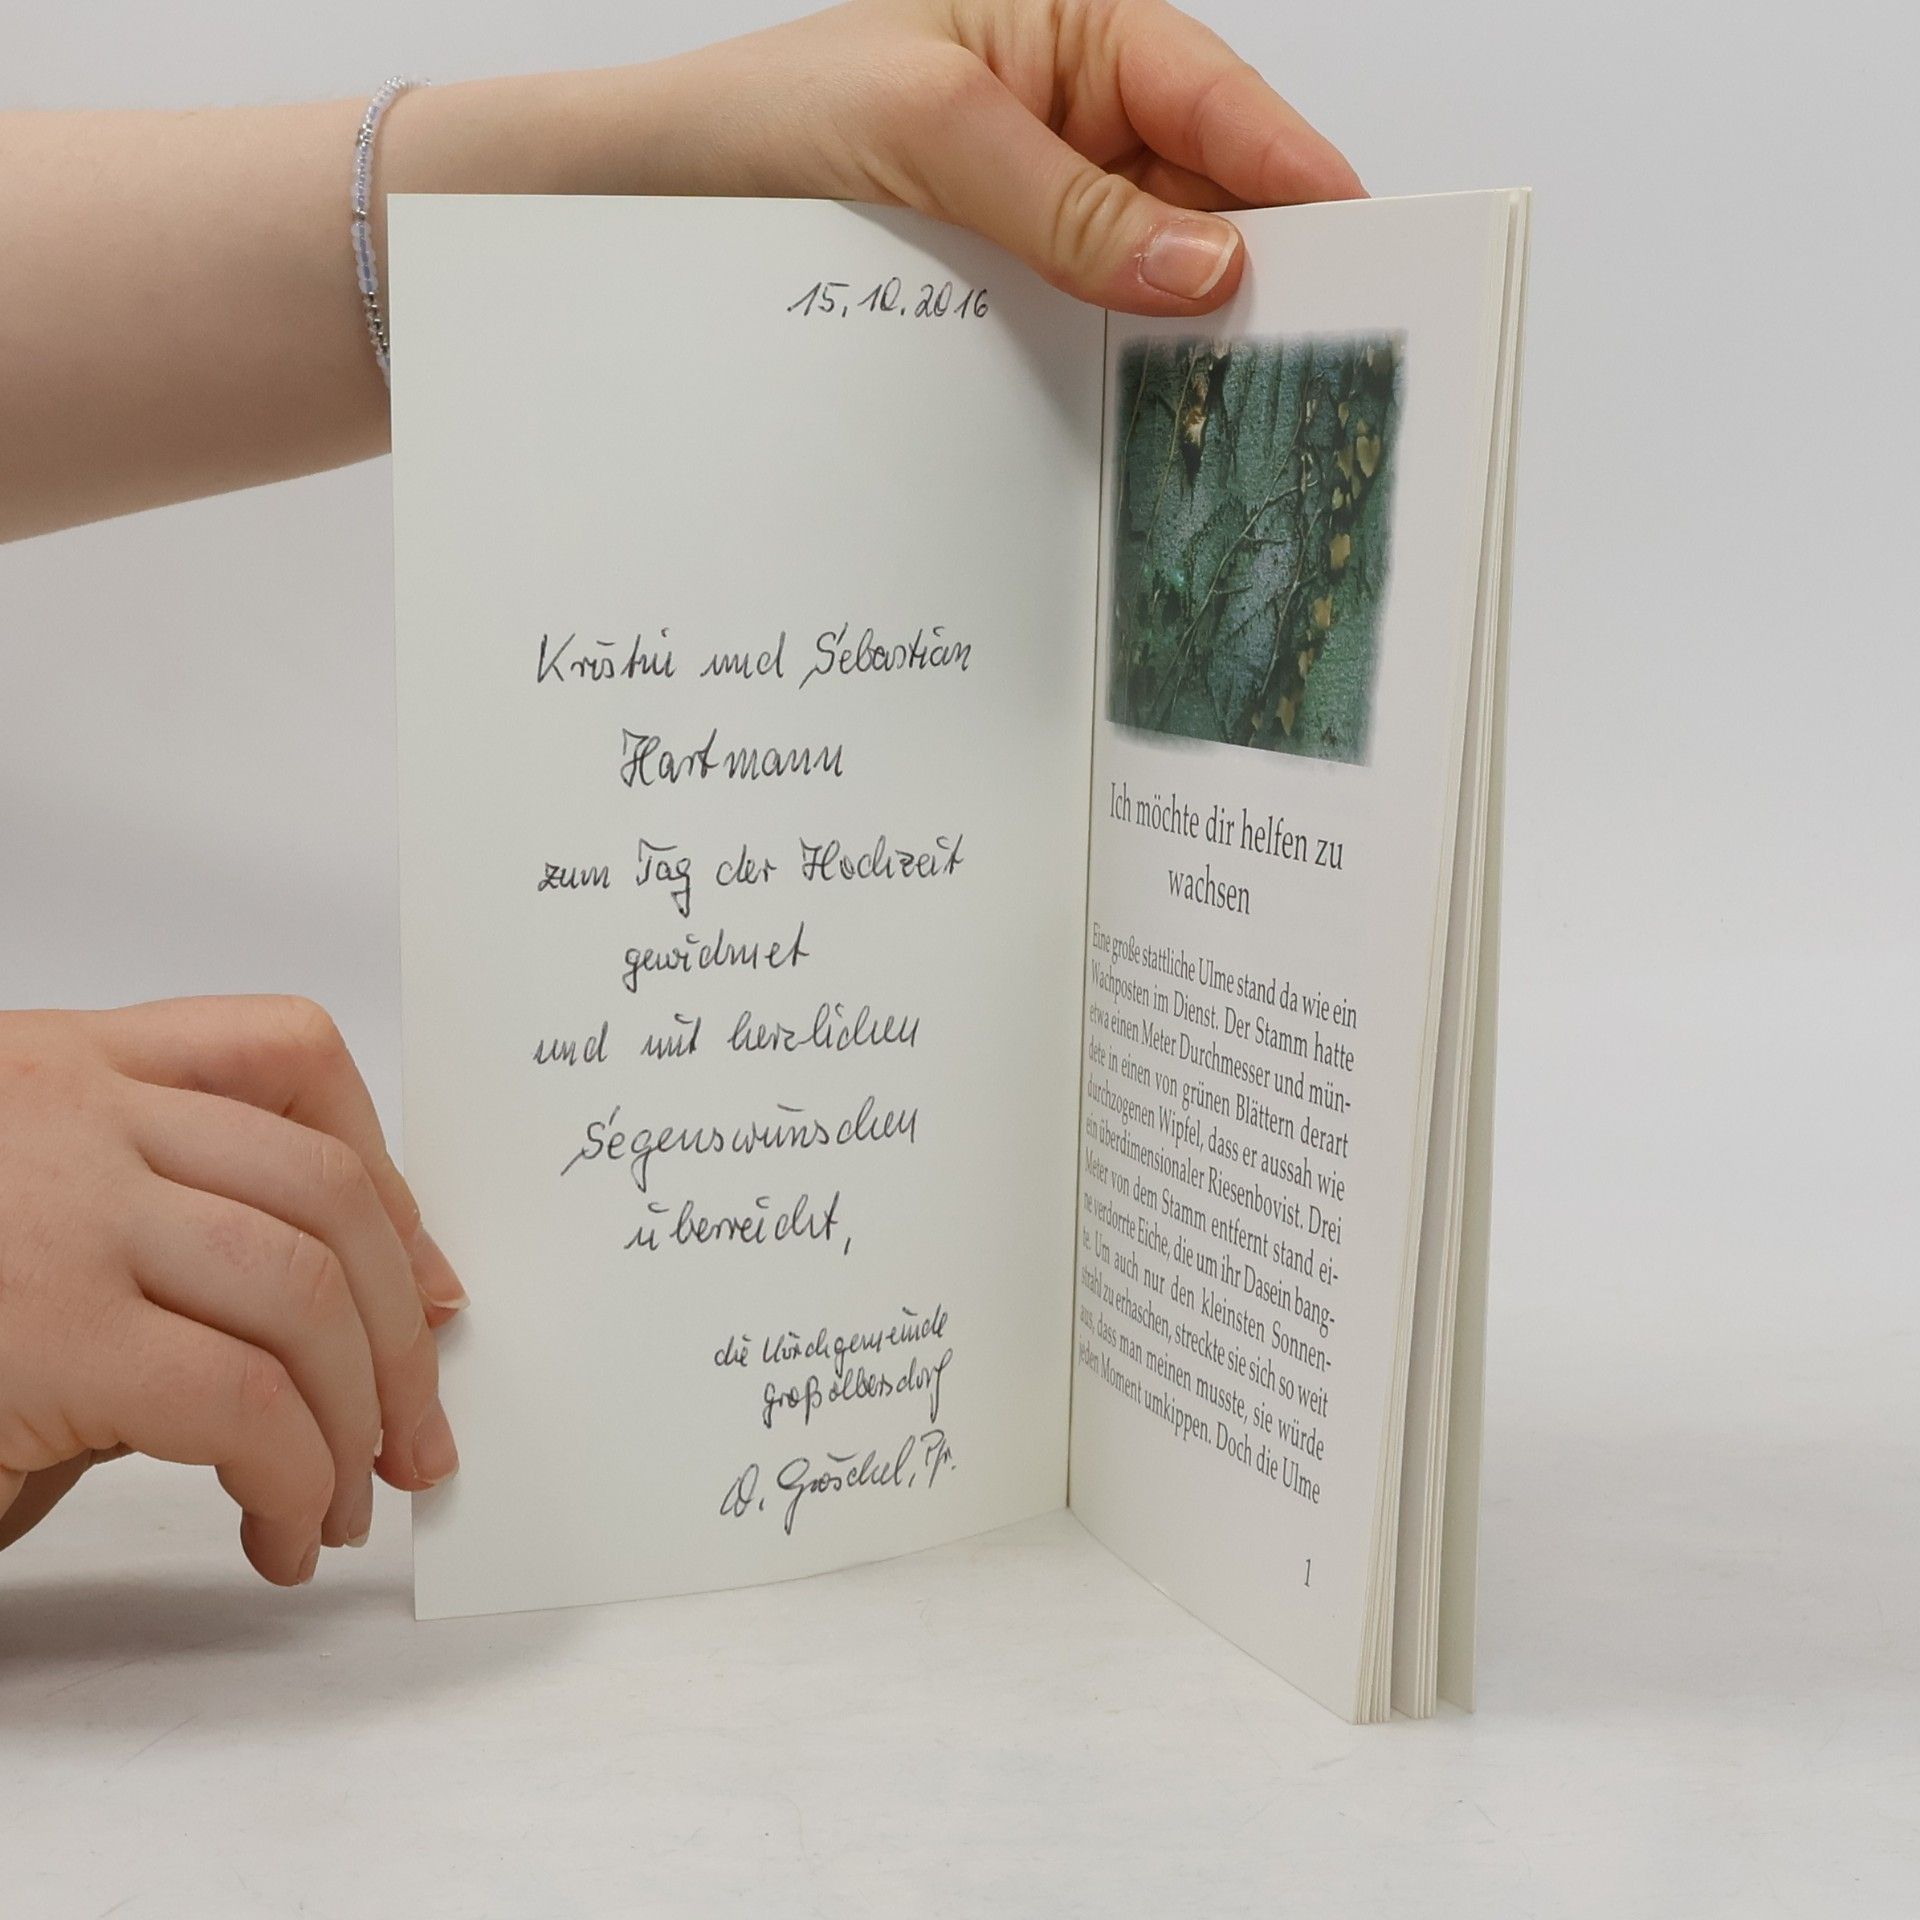 15.10.2016
Kristin und Sebastian
Hartmann
zum Tag der Hochzeit
gewidmet
und mit herzlichen
Segenswünschen
überreicht,
die Kirchgemeinde
Großolbersdorf
Pfr.
Ich möchte dir helfen zu
wachsen
Eine große stattliche Ulme stand da wie ein
Wachposten im Dienst. Der Stamm hatte
etwa einen Meter Durchmesser und mün-
dete in einen von grünen Blättern derart
durchzogenen Wipfel, dass er aussah wie
ein überdimensionaler Riesenbovist. Drei
Meter von dem Stamm entfernt stand ei-
ne verdorrte Eiche, die um ihr Dasein bang-
te. Um auch nur den kleinsten Sonnen-
strahl zu erhaschen, streckte sie sich so weit
aus, dass man meinen musste, sie würde
jeden Moment umkippen. Doch die Ulme
1